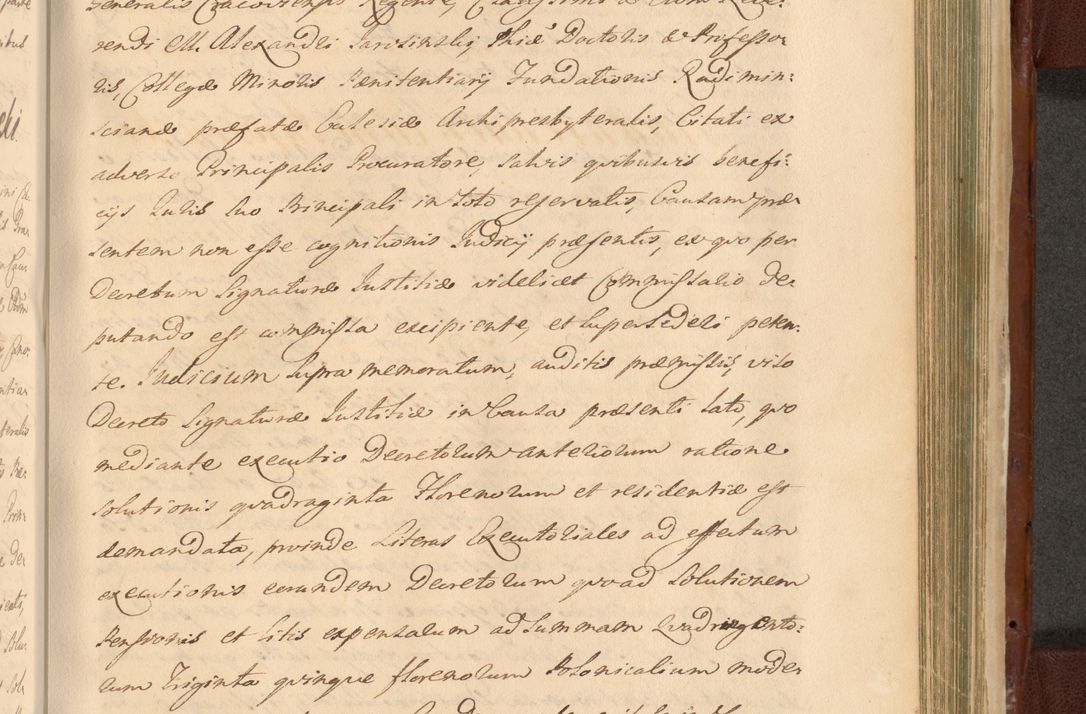 Generalis Cracoviensis Regente, Clarissimi & Adm Reve:
rendi M. Alexandri Jarosinskij Phiæ Doctoris & Professo:
ris, Collegæ Minoris Pænitentiarij Fundationis Radimin:
scianæ præfatæ Ecclesiæ Archipresbyteralis, Citati ex
adverso Principalis Procuratore, salvis quibusvis benefi:
cijs Juris suo Principali in toto reservatis, Causam præ
sentem non esse cognitionis Judicij præsentis, ex quo per
Decretum Signaturæ Justitiæ videlicet Commissario De:
putando est commissa excipiente, et supersederi peten:
te. Judicium supra memoratum, auditis præmissis, viso
Decreto Signaturæ Justitiæ in Causa præsenti lato, quo
mediante executio Decretorum anteriorum ratione
solutionis quadraginta Florenorum et residentiæ est
demandata, proinde Literas Executoriales ad effectum
executionis eorundem Decretorum quoad solutionem
Pensionis et litis expensarum ad summam Quadringento:
rum Triginta quinque florenorum Polonicalium mode: